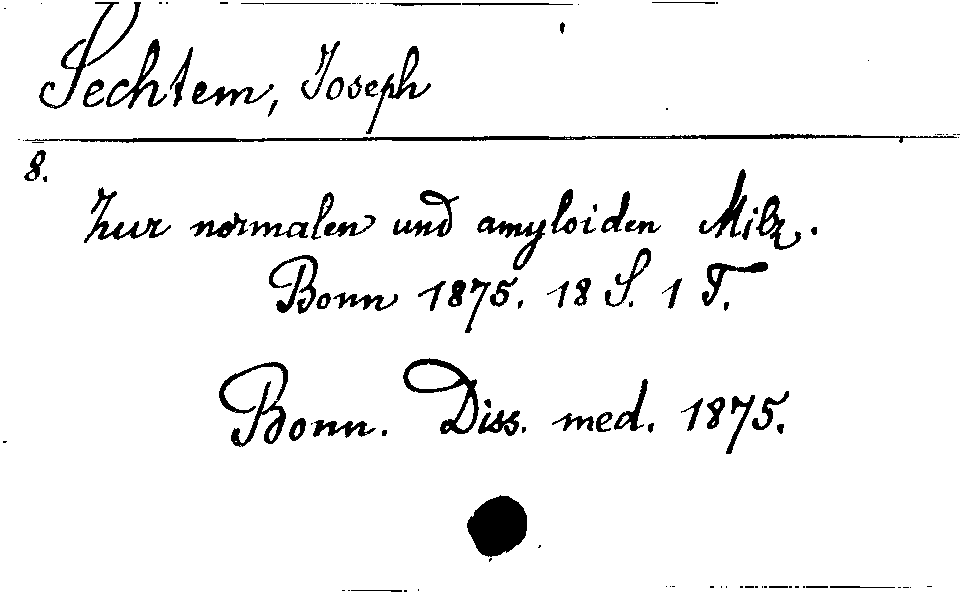 Sechtem, Joseph
8.
Zur normalen und amyloiden Milz.
Bonn 1875. 18 S. 1 T.
Bonn. Diss. med. 1875.